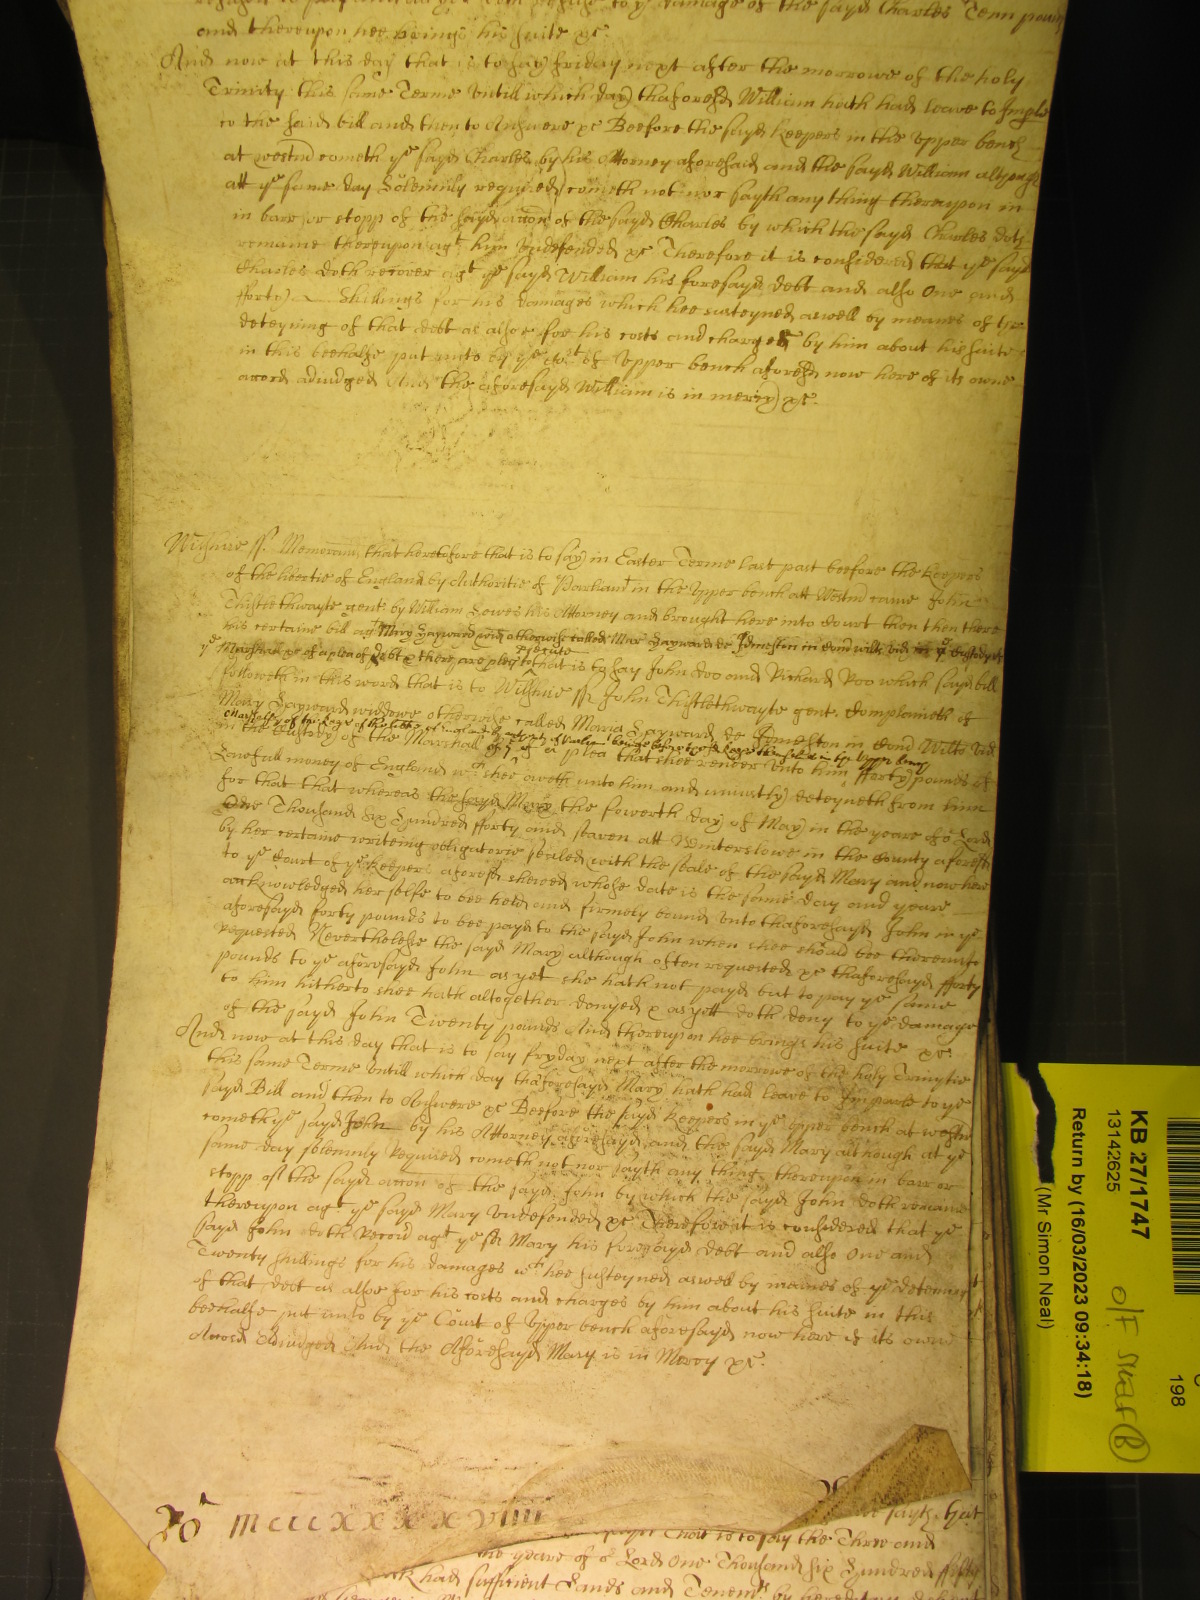 to yͤ damage of the sayd Charles Tenn pounds
and thereupon hee brings his suite &c.
And now at this day that is to say friday next after the morrowe of the holy
Trinity this same Terme untill which day thaforesd William hath had leave to Imple
to the said bill and then to Answere &c Beefore the sayd keepers in the upper bench
at westm̃ cometh yͤ sayd Charles by his Attorney aforesaid and the sayd William although
att yͤ same day Solemnly required cometh not nor sayth any thing thereupon in
in barr or stopp of the sayd accon of the sayd Charles by which the sayd Charles doth
remaine thereupon agᵗ him Undefended &c Therefore it is considered that yͤ sayd
Charles doth recover agᵗ yͤ sayd William his foresayd debt and also One and
fforty Shillings for his damages which hee susteyned aswell by meanes of the
deteyning of that debt as alsoe for his costs and charges by him about his suite
in this beehalfe put unto by yͤ Coᵗ of Upper bench aforesd now here of its owne
accord adiudged And the aforesayd William is in mercy &c.
Wilshire ss. Memorand that heretofore that is to say in Easter Terme last past beefore the keepers
of the libertie of England by Authoritie of Parliamᵗ in the Upper bench att Westm̃ came John
Thistlethwayte gent by William Lowes his Attorney and brought here into Court then then there
his certaine bill agᵗ Mary Hayward wid otherwise called Mar Hayward de in Com̃ wilts vid in yͤ custody of
yͤ Marshall &c of a plea of debt & there are pleg to
psecute
that is to say John Doo and Richard Roo which sayd bill
followeth in this word that is to Wilshire ss John Thistlethwayte gent. Complaineth of
Mary Hayward widdowe otherwise called Maria Hayward de in Com̃ Wilts vid
in the custody of the Marshall of a plea that shee render unto him fforty pounds of
Lawfull money of England wᶜʰ shee oweth unto him and uniustly deteyneth from him
for that that whereas the sayd Mary the fowerth day of May in the yeare of oͬ Lord
One Thousand Six Hundred fforty and seaven att Winterslowe in the County aforesd
by her certaine writeing obligatorie sealed with the seale of the sayd Mary and now here
to yͤ Court of yͤ keepers aforesd shewed whose date is the same day and yeare
acknowledged her selfe to bee held and firmely bound unto thaforesayd John in yͤ
aforesayd forty pounds to bee payd to the sayd John when shee should bee thereunto
requested Neverthelesse the sayd Mary although often requested &c thaforesayd fforty
pounds to yͤ aforesayd John as yet she hath not payd but to pay yͤ same
to him hitherto shee hath altogether denyed & as yett doth deny to yͤ damage
of the sayd John Twenty pounds And thereupon hee brings his suite &c.
And now at this day that is to say fryday next after the morrowe of the holy Trinytie
this same Terme untill which day thaforesayd Mary hath had leave to Imparle to yͤ
sayd Bill and then to Answere &c Beefore the sayd keepers in yͤ upper bench at westm̃
cometh yͤ sayd John by his Attorney aforesayd and the sayd Mary although at yͤ
same day solemnly required cometh not nor sayth any thing thereupon in barr or
stopp of the sayd accon of the sayd John by which the sayd John doth remaine
thereupon agᵗ yͤ sayd Mary Undefended &c Therefore it is considered that yͤ
sayd John doth Recovᵈ agᵗ yͤ sd Mary his foresayd debt and also One and
Twenty shillings for his damages wᶜʰ hee susteyned aswell by meanes of yͤ detening
of that debt as alsoe for his costs and charges by him about his suite in this
beehalfe put unto by yͤ Court of Upper bench aforesayd now here of its owne
Accord Adiudged And the Aforesayd Mary is in Mercy &c.
Ro mcccxxxxxviiii
sayth that
that is to say the Three and
the yeare of oͬ Lord One Thousand six Hundred fifty
had sufficient Lands and Tenemᵗˢ
KB 27/1747
13142625
Return by (16/03/2023 09:34:18)
(Mr Simon Neal)
198